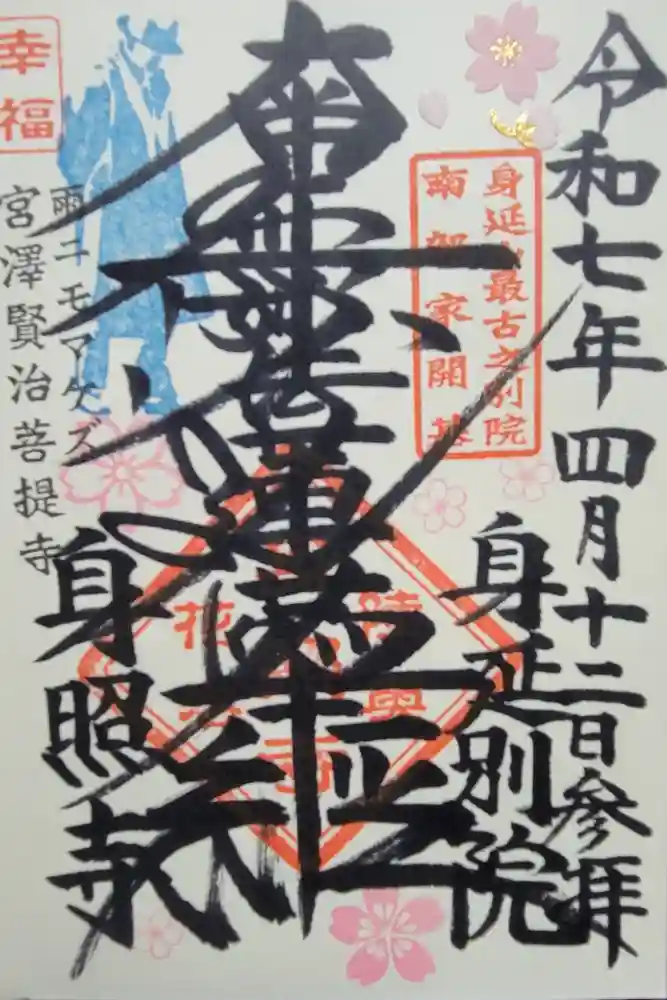 令和七年四月十二日参拝
身延山最古之別院
南部家開基
身延別院
南無妙法蓮華経
幸福
雨ニモマケズ
宮澤賢治菩提寺
身照寺